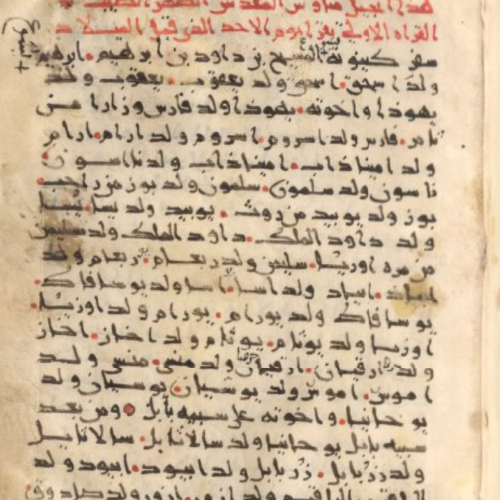 القراه الاولى يقرا يوم الاحد الذى قبل الميلاد
سفر كينونه المسيح بن داود بن ابرهيم. ابرهيم
ولد اسحق. اسحق ولد يعقوب. يعقوب ولد
يهوذا واخوته. يهوذا ولد فارس وزارا من
تامر. فارس ولد اسروم. اسروم ولد ارام. ارام
ولد اميناذاب. اميناذاب ولد ناسون.
ناسون ولد سلمون. سلمون ولد بوز من
بوز ولد يوبيد من روث. يوبيد ولد يسا. يسا
ولد داود الملك. داود الملك ولد سليمن
من مره اوريا. سليمن ولد ربعام. ربعام ولد
ابياد. ابياد ولد اسا. اسا ولد يوسافاط.
يوسافاط ولد يورام. يورام ولد اوزيا.
اوزيا ولد يوثام. يوثام ولد احاز. احاز
ولد. ولد منسى. منسى ولد
اموس. اموس ولد يوسيان. يوسيان ولد
يوحانيا. واخوته على سبيه بابل. ومن بعد
سبيه بابل يوحانيا ولد سالاتايل. سالاتايل
ولد زربابل. زربابل ولد ابيود. ابيود ولد